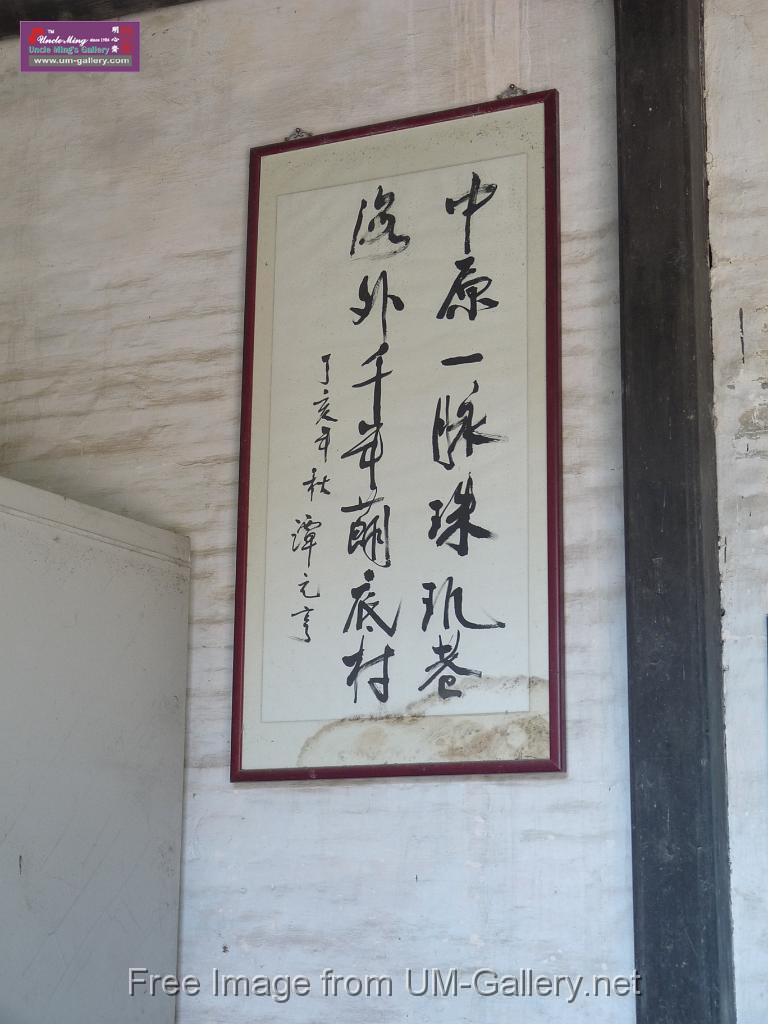 Uncle Ming since 1984
Uncle Ming's Gallery
明心齋
www.um-gallery.com
中原一脉珠玑巷
海外千年蓢底村
丁亥年秋 譚元亨
Free Image from UM-Gallery.net